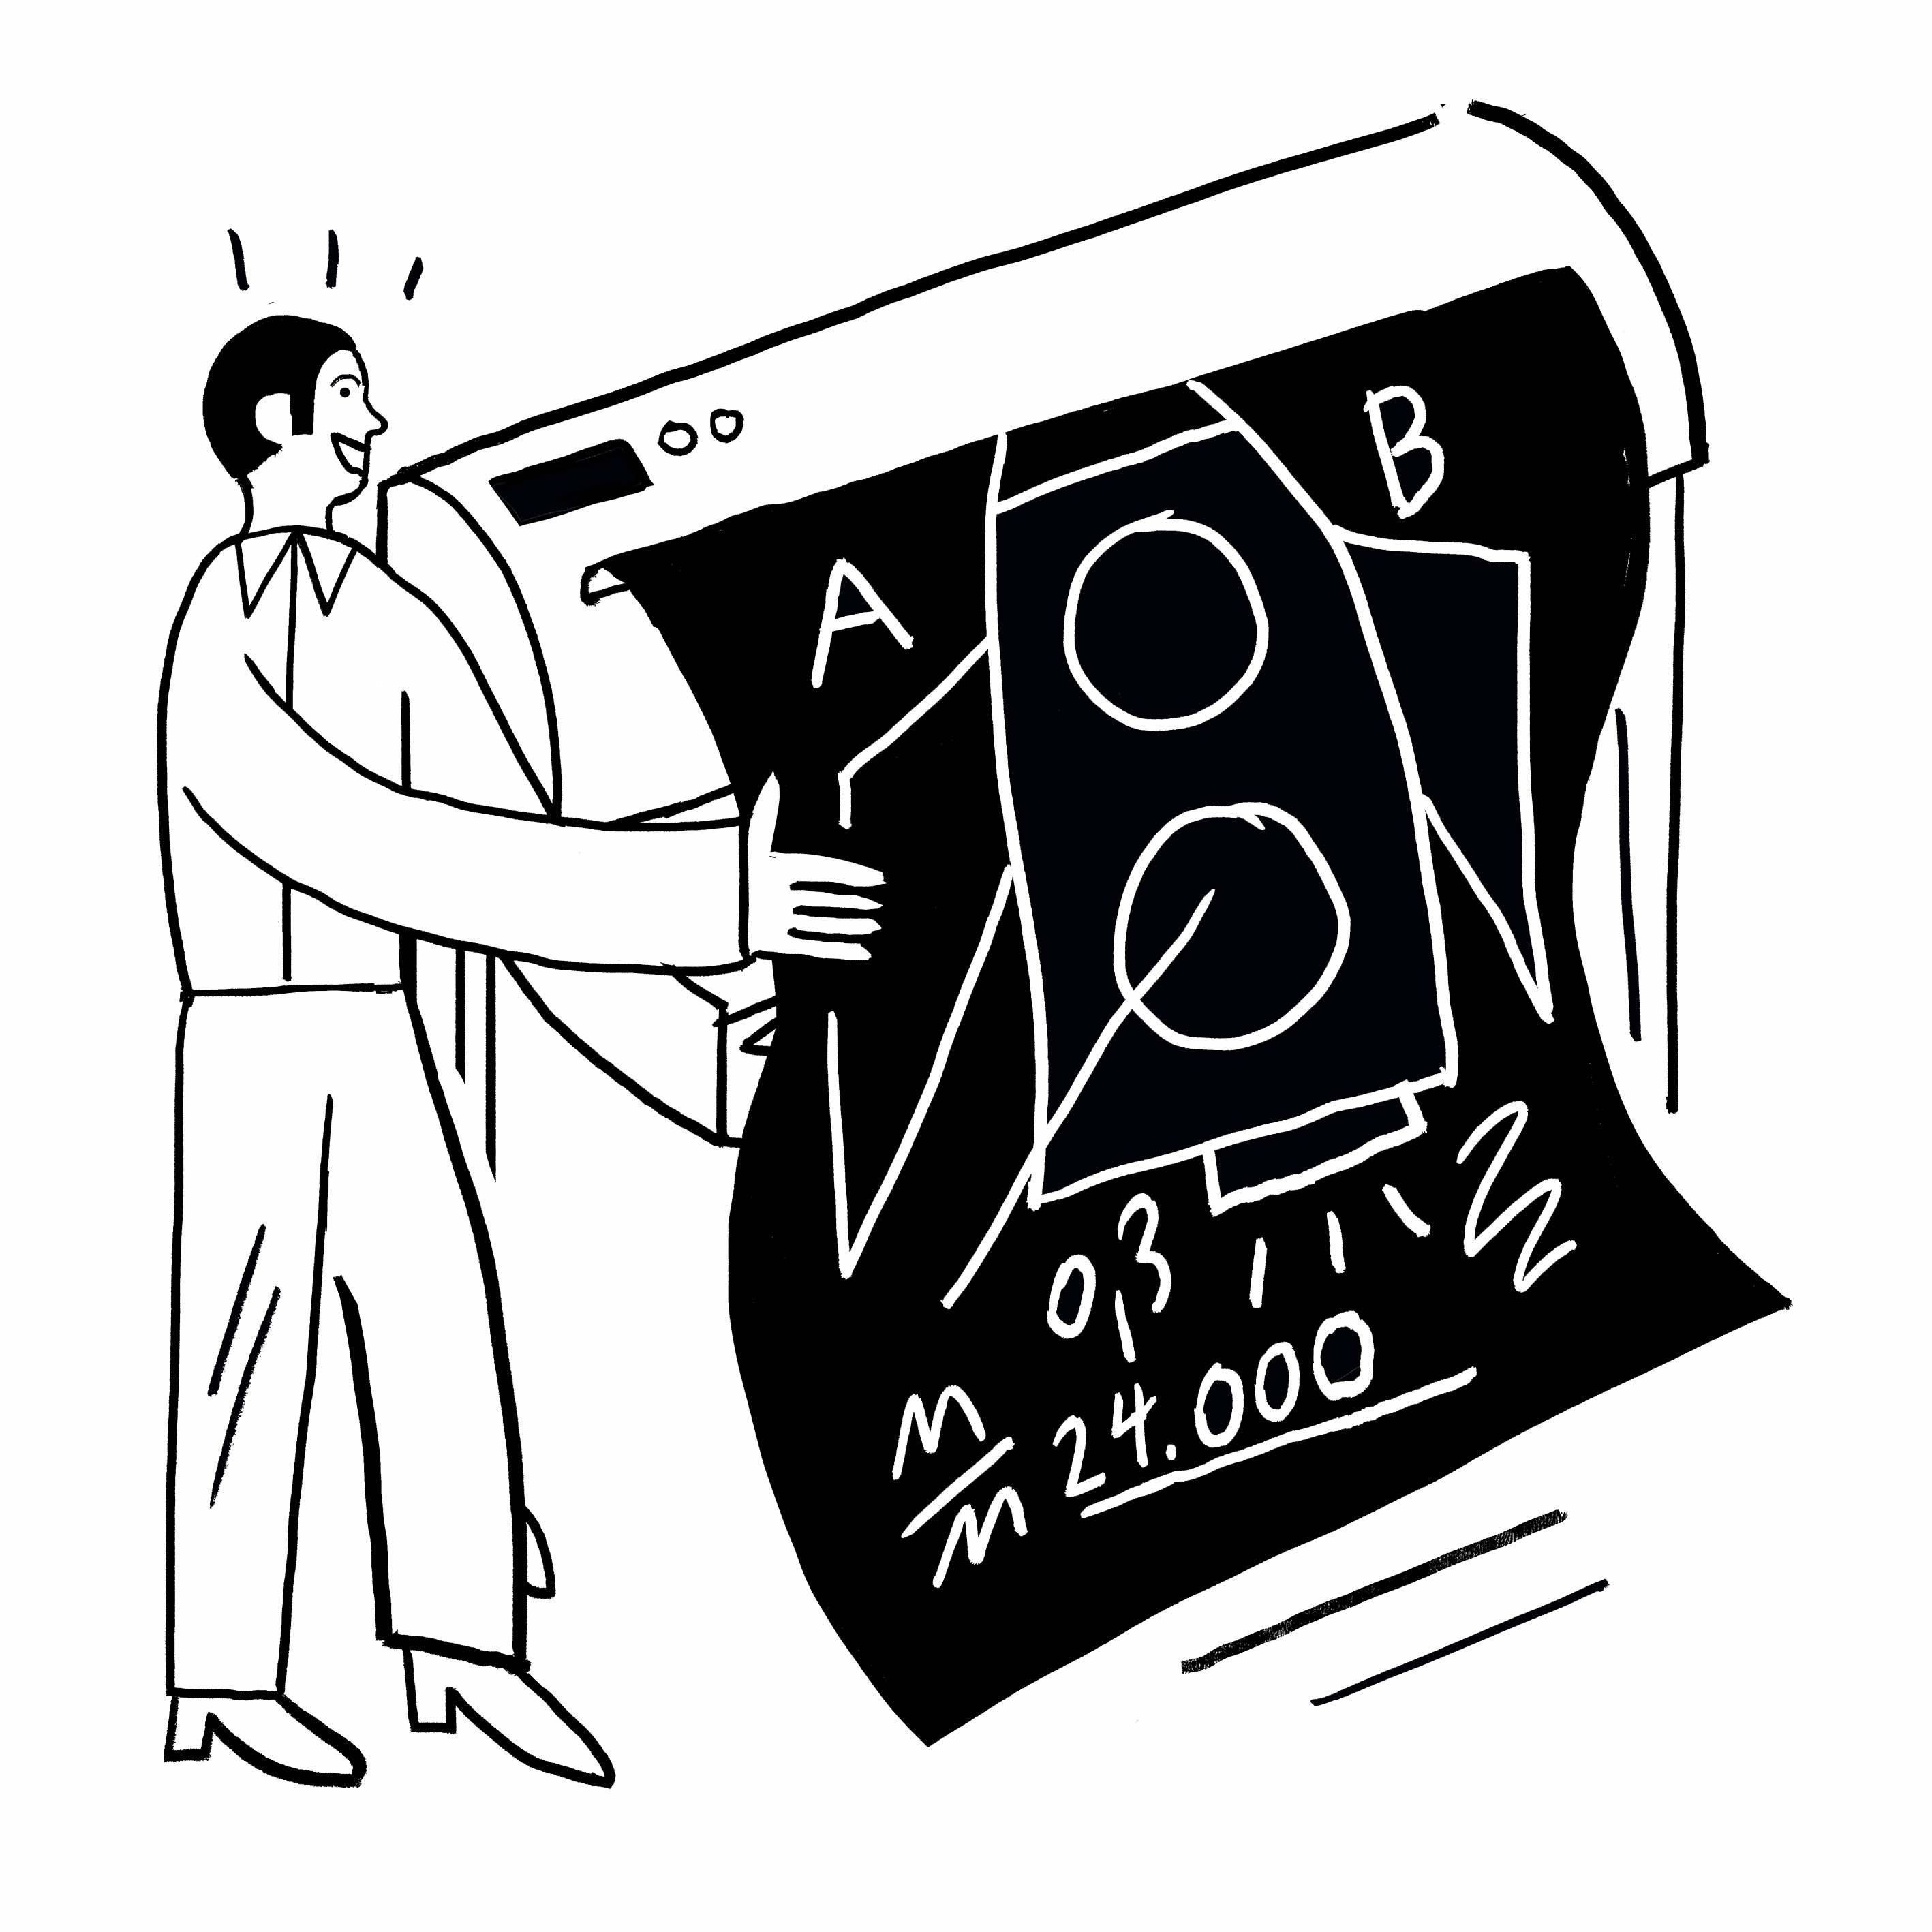 A
B
0,3
M/m 24.000